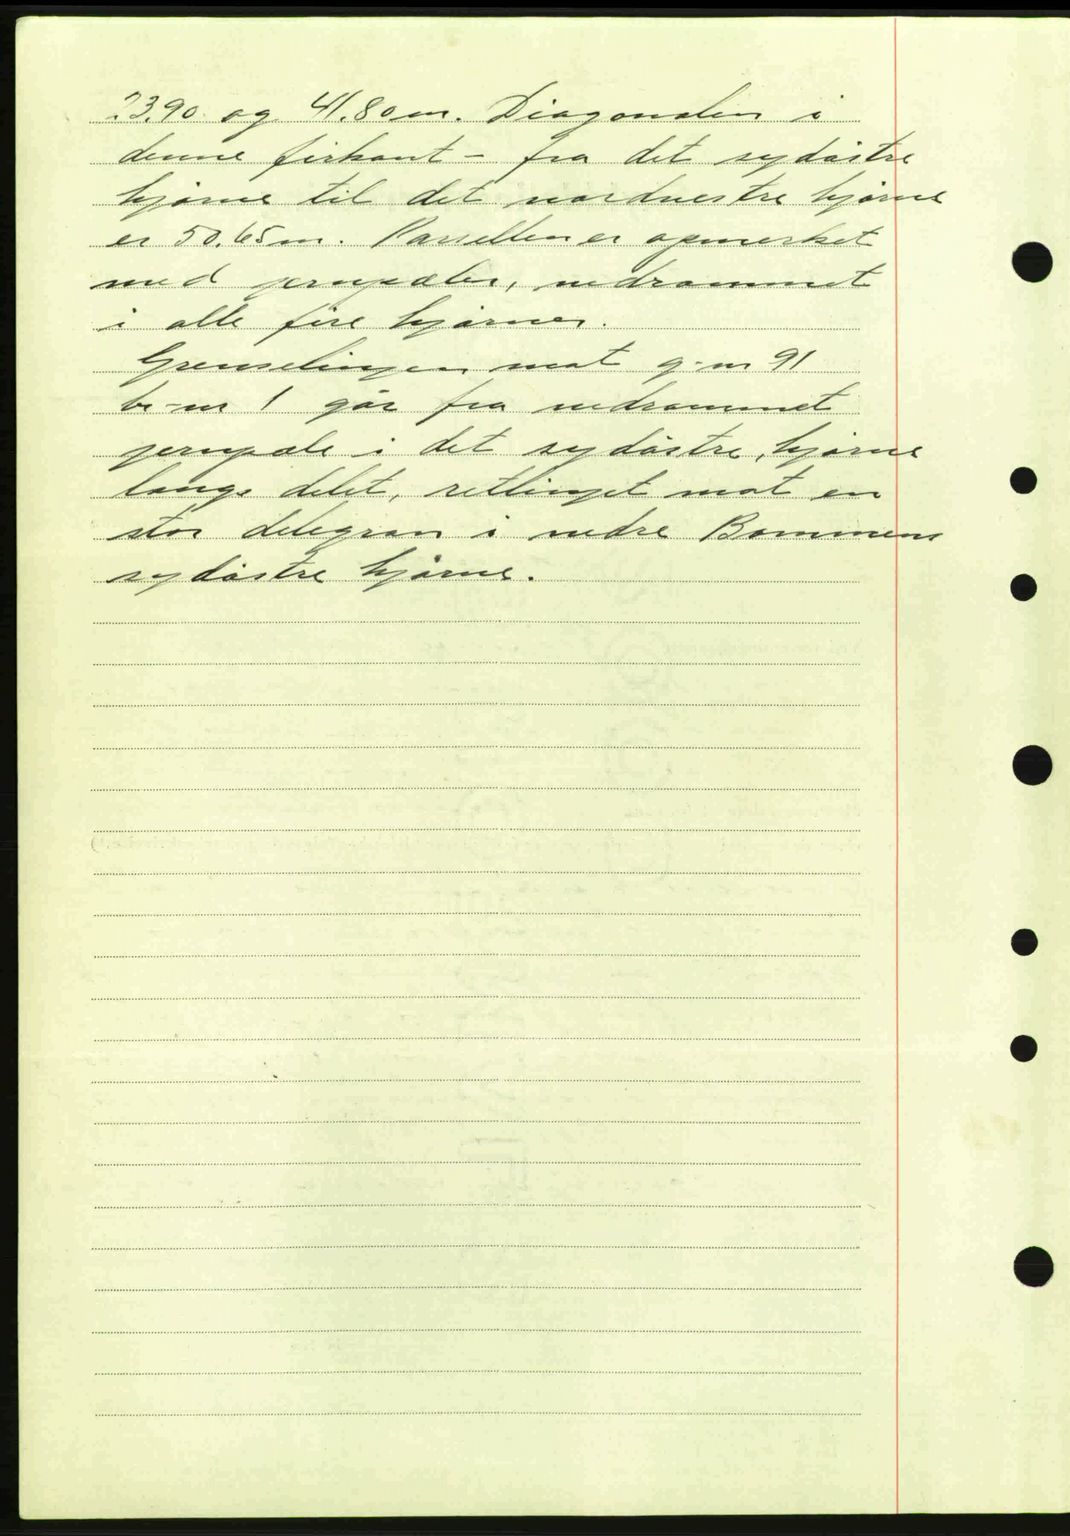 23.90 og 41.80 m. Diagonalen i
denne firkant - fra det sydøstre
hjørne til det nordvestre hjørne
er 50.65 m. Parsellen er opmerket
med jernpæler, nedrammet
i alle fire hjørner.
Grenselinjen mot g-nr 91
br-nr 1 går fra nedrammet
jernpæle i det sydøstre hjørne
langs delet, retlinjet mot en
stor delegran i nedre Bommens
sydøstre hjørne.